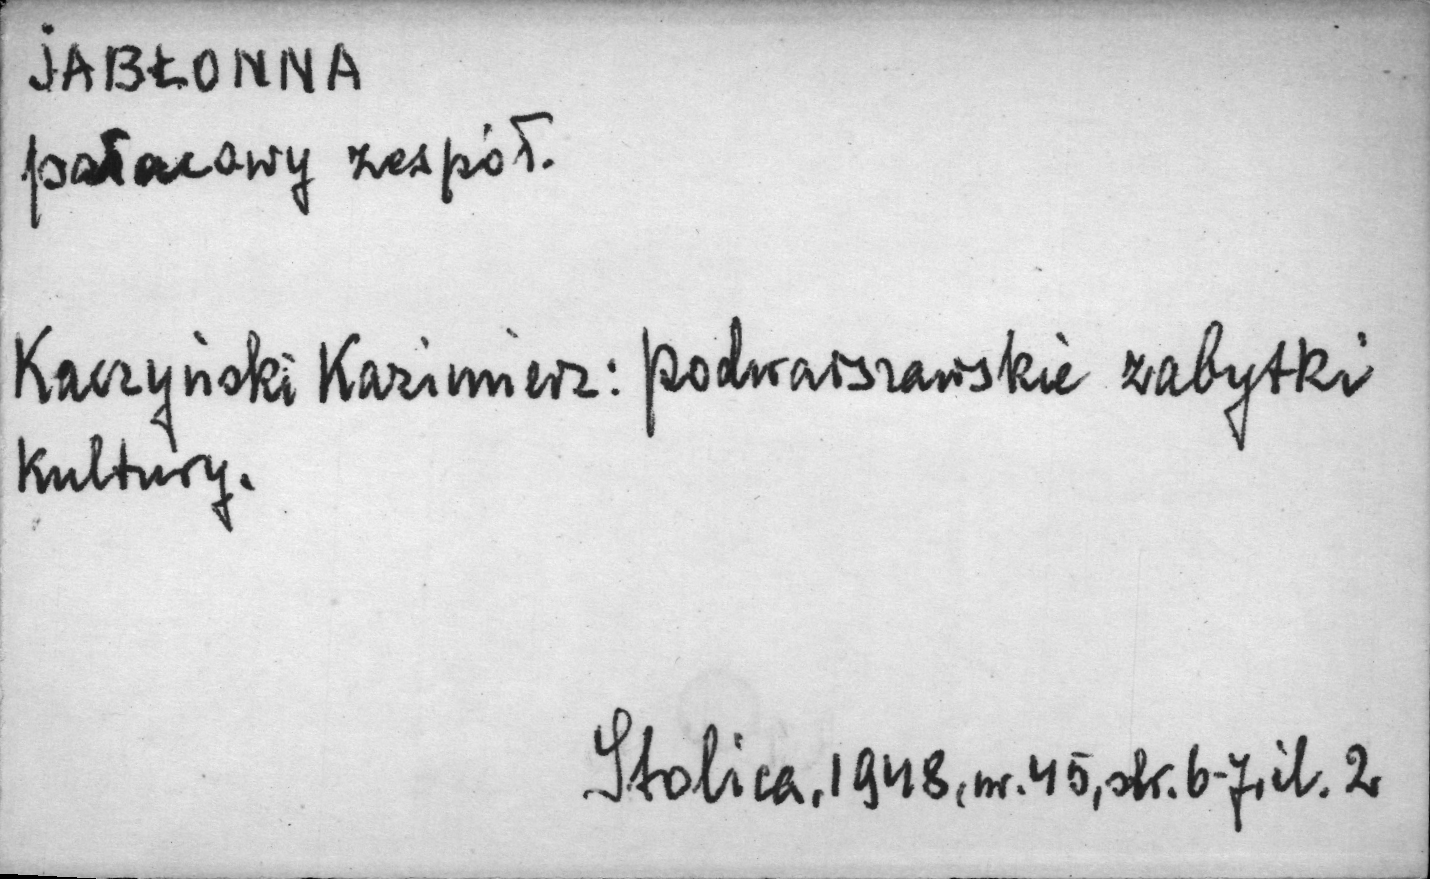 JABŁONNA
pałacowy zespół.
Kaczyński Kazimierz: podwarszawskie zabytki
kultury.
Stolica, 1948, nr. 45, str. 6-7, il. 2